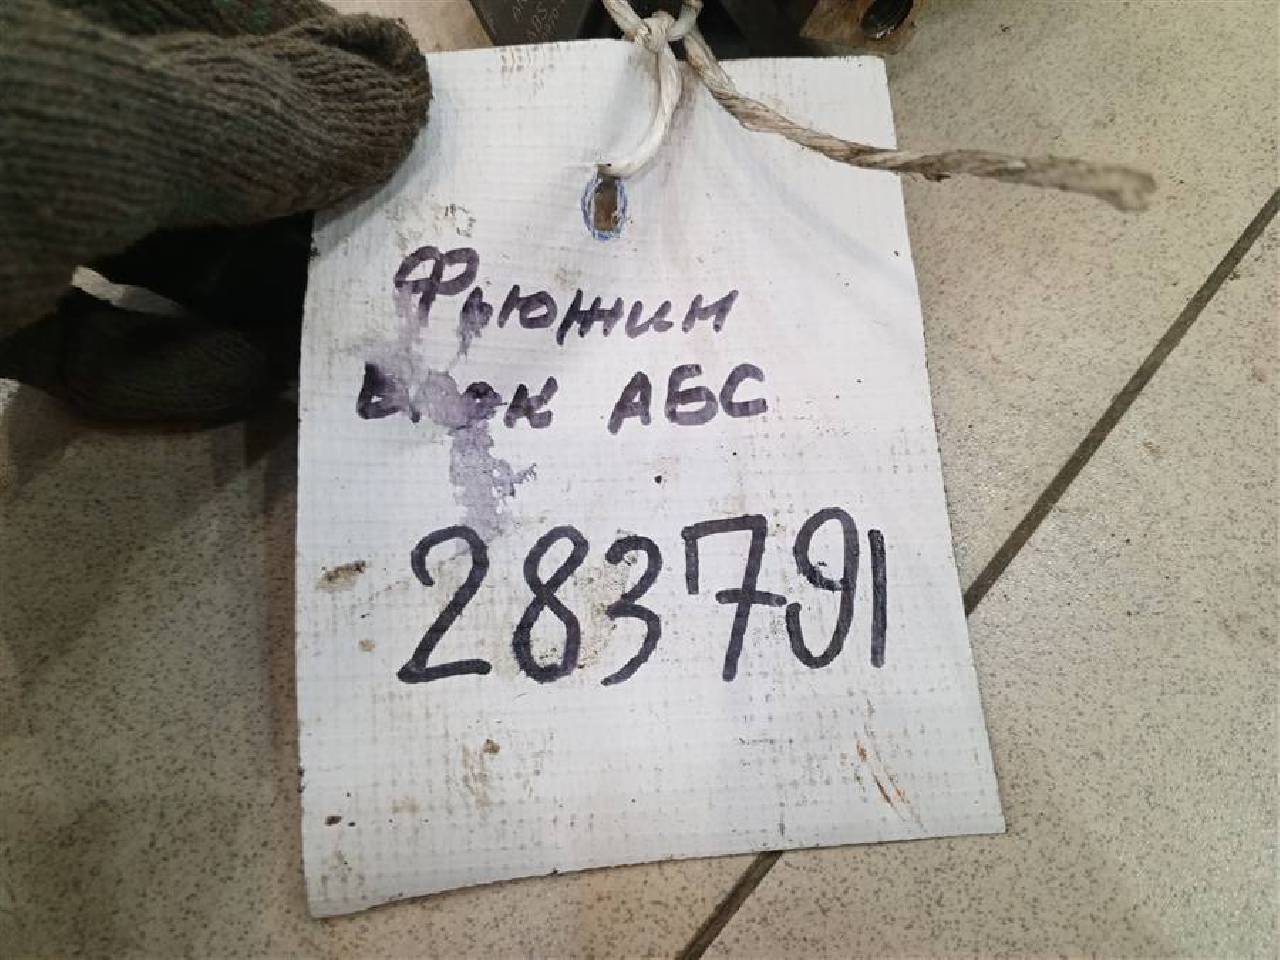 Фьюжин
Блок АБС
283791